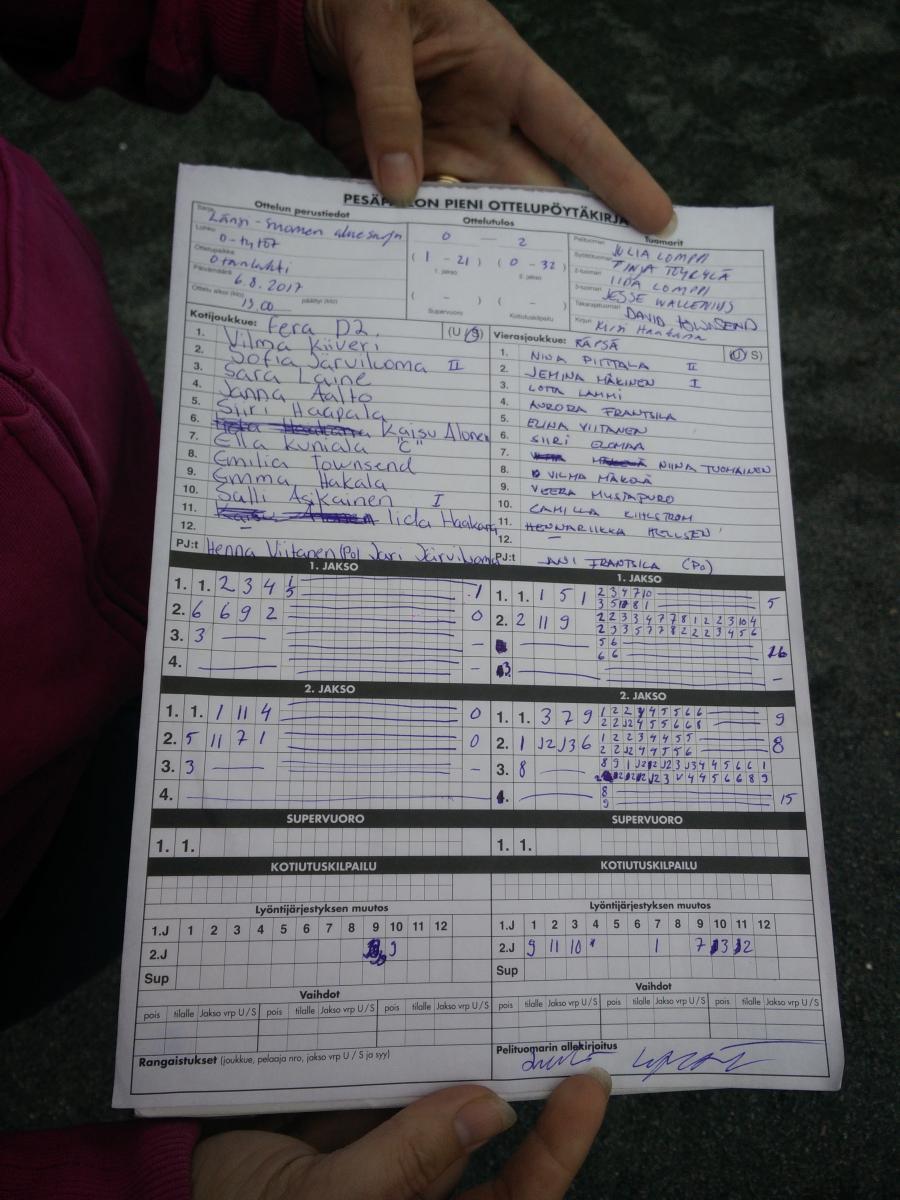 PESÄPALLON PIENI OTTELUPÖYTÄKIRJA
Ottelun perustiedot
Ottelutulos
Tuomarit
Sarja Länsi-Suomen aluesarja
Lohko D-tytöt
Ottelupaikka Otanlahti
Päivämäärä 6.8.2017
Ottelu alkoi (klo) 13.00 päättyi (klo)
0 — 2
( 1 - 21 ) ( 0 - 32 )
1. jakso 2. jakso
( - ) ( - )
Supervuoro Kotiutuskilpailu
Pelituomari JULIA LOMPPI
Syöttötuomari TINJA TÖYRYLÄ
2-tuomari IIDA LOMPPI
3-tuomari JESSE WALLENIUS
Takarajatuomari DAVID TOWNSEND
Kirjuri Kirsi Haakana
Kotijoukkue: Fera D2. (U S)
1. Vilma Kiiveri
2. Sofia Järviluoma II
3. Sara Laine
4. Janna Aalto
5. Siiri Haapala
6. Kaisu Alonen
7. Ella Kuniala "C"
8. Emilia Townsend
9. Emma Hakala
10. Salli Asikainen I
11. Iida Haakana
12. —
PJ:t Henna Viitanen (Po) Jari Järviluoma
Vierasjoukkue: RÄPSÄ (U S)
1. NINA PIITTALA II
2. JEMINA MÄKINEN I
3. LOTTA LAMMI
4. AURORA FRANTSILA
5. ELINA VIITANEN
6. SIIRI ELOMAA
7. NIINA TUOMAINEN
8. VILMA MÄKELÄ
9. VEERA MUSTAPURO
10. CAMILLA KIHLSTRÖM
11. HENNARIIKKA HELLSEN
12. —
PJ:t JANI FRANTSILA (Po)
1. JAKSO
1. 1. 2 3 4 5 1
2. 6 6 9 2 0
3. 3 — -
4. — -
2. JAKSO
1. 1. 1 11 4 0
2. 5 11 7 1 0
3. 3 — -
4.
1. JAKSO
1. 1. 1 5 1 2 3 4 7 10 5
3 5 10 8 1
2. 2 11 9 2 2 3 3 4 7 7 8 1 2 2 3 10 4
2 3 3 5 7 7 8 2 2 2 3 4 5 6
5 6 16
6 6
3. -
2. JAKSO
1. 1. 3 7 9 1 2 2 3 4 5 5 6 6 9
2 2 12 4 5 5 6 6 8
2. 1 12 13 6 1 2 2 3 4 4 5 5 8
2 2 12 4 4 5 5 6
3. 8 —
8
9
15
SUPERVUORO
1. 1.
KOTIUTUSKILPAILU
Lyöntijärjestyksen muutos
1.J 1 2 3 4 5 6 7 8 9 10 11 12
2.J 9
Sup
Vaihdot
pois tilalle Jakso vrp U / S pois tilalle Jakso vrp U / S pois tilalle Jakso vrp U / S
Rangaistukset (joukkue, pelaaja nro, jakso vrp U / S ja syy)
SUPERVUORO
1. 1.
KOTIUTUSKILPAILU
Lyöntijärjestyksen muutos
1.J 1 2 3 4 5 6 7 8 9 10 11 12
2.J 9 11 10 1 7 13 12
Sup
Vaihdot
pois tilalle Jakso vrp U / S pois tilalle Jakso vrp U / S pois tilalle Jakso vrp U / S
Pelituomarin allekirjoitus